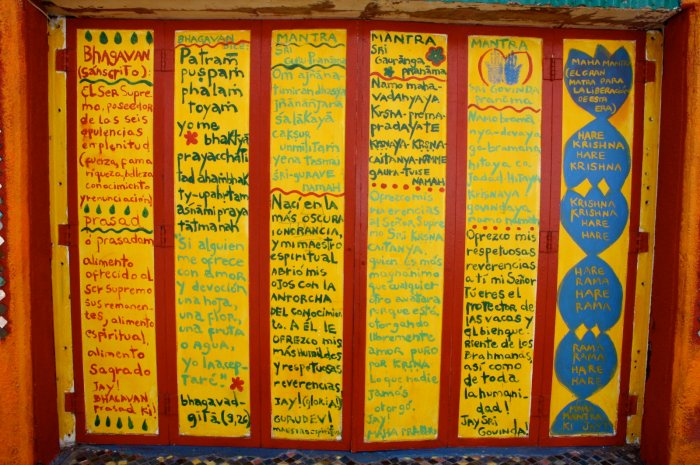 BHAGAVAN
(SANSCRITO)
EL SER SUPRE-
MO, POSEEDOR
de LAS SEIS
OPULENCIAS
EN PLENITUD
(FUERZA, FAMA
RIQUEZA, BELLEZA
CONOCIMIENTO
Y RENUNCIACIÓN)
prasad
ó prasadam
alimento
OFRECIDO AL
SER SUPREMO
SUS REMANEN-
TES, ALIMENTO
ESPIRITUAL,
alimento
SAGRADO
JAY!
BHAGAVAN
PRASAD KI!
BHAGAVAN
DICE:
Patram
puspam
phalam
toyam
yo me
bhaktya
prayacchati
tad aham bhak
ty-upahrtam
asnami praya
tatmanah
"Si alguien
me ofrece
con amor
y devoción
una hoja,
una flor,
una fruta
o agua,
yo la acep-
taré"
bhagavad-
gitā (9,26)
MANTRA
SRI
GURU Pranāma
Om ajñana-
timirandhasya
jñananjana
salakaya
caksur
unmilitam
yena tasmai
sri-gurave
namah
Nací en la
más oscura
ignorancia,
y mi maestro
espiritual
abrió mis
ojos con la
antorcha
del conocimien-
to. A ÉL le
ofrezco mis
más humildes
y respetuosas
reverencias,
JAY! (gloria!)
GURUDEV!
MAESTRO
MANTRA
SRI
GAURĀNGA
pranāma
Namo maha-
vadanyaya
Krsna-prema-
pradayate
Krsnaya Krsna-
Caitanya-namne
gaura-tvise
NAMAH
Ofrezco mis
reverencias
al Señor Supremo
Sri Krsna
Caitanya
quien es más
magnánimo
que cualquier
otro avatara
porque está
otorgando
libremente
amor puro
por Krsna
Lo que nadie
jamás
otorgó.
Jay!
MAHA PRABHU
MANTRA
SRI GOVINDA
Pranāma
Namo brama
nya-devaya
go-bramana
hitaya ca
jagad hitaya
krisnaya
govindaya
namo namah
Ofrezco mis
respetuosas
reverencias
a ti mi Señor
Tú eres el
protector de
las vacas y
el bienque-
riente de los
Brahmanas,
así como
de toda
la humani-
dad!
JAY SRI
GOVINDA!
MAHA MANTRA
(EL GRAN
MATRA PARA
LA LIBERACIÓN
DE ESTA
ERA)
HARE
KRISHNA
HARE
KRISHNA
KRISHNA
KRISHNA
HARE
HARE
HARE
RAMA
HARE
RAMA
RAMA
RAMA
HARE
HARE
MAHA
MANTRA
KI JAY